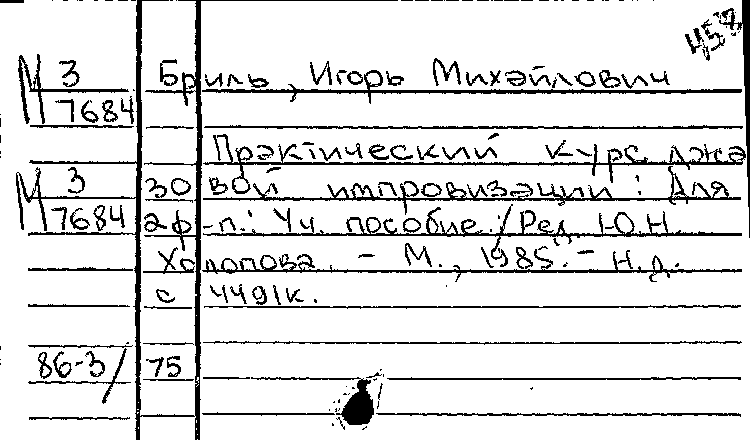 458
М 3 Бриль, Игорь Михайлович
7684
Практический курс джа
М 3 зовой импровизации : Для
7684 ф-п.: Уч. пособие / Ред. Ю.Н.
Холопова. - М., 1985. - Н.д.
с 4491к.
86-3/ 75